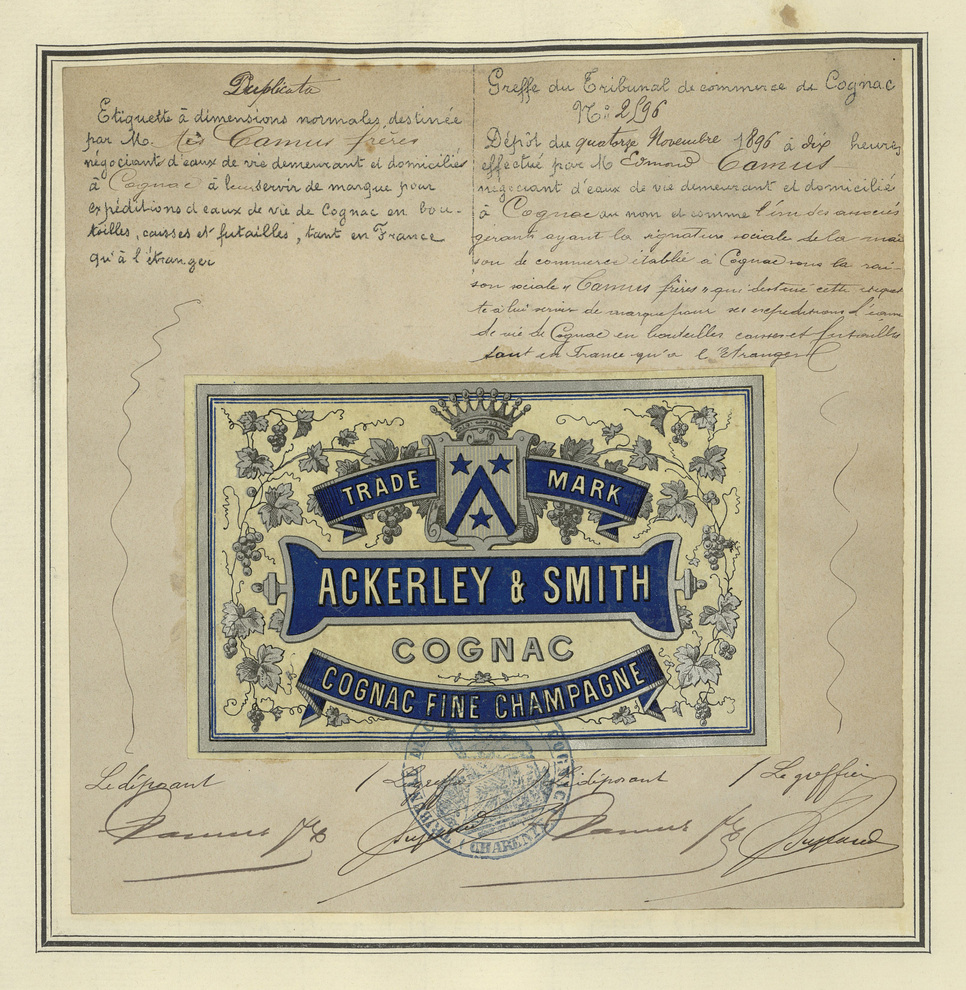 Duplicata
Etiquette à dimensions normales destinée
par Mo. les Camus frères
négociant d'eaux de vie demeurant et domiciliés
à Cognac à leur servir de marque pour
expéditions d'eaux de vie de Cognac en bou-
teilles, caisses et futailles, tant en France
qu'à l'étranger
Greffe du Tribunal de commerce de Cognac
N.: 2596
Dépôt du quatorze Novembre 1896 à dix heures
effectué par M Edmond Camus
négociant d'eaux de vie demeurant et domicilié
à Cognac au nom et comme l'un des associés
gérants ayant la signature sociale de la mai
son de commerce établie à Cognac sous la rai-
son sociale "Camus frères" qui destine cette etiquet
te à lui servir de marque pour ses expéditions d'eaux
de vie de Cognac en bouteilles caisses et futailles
tant en France qu'à l'Etranger
TRADE MARK
ACKERLEY & SMITH
COGNAC
COGNAC FINE CHAMPAGNE
Le déposant Le greffier Le déposant Le greffier
Camus Camus
TRIBUNAL DE COGNAC
CHARENTE